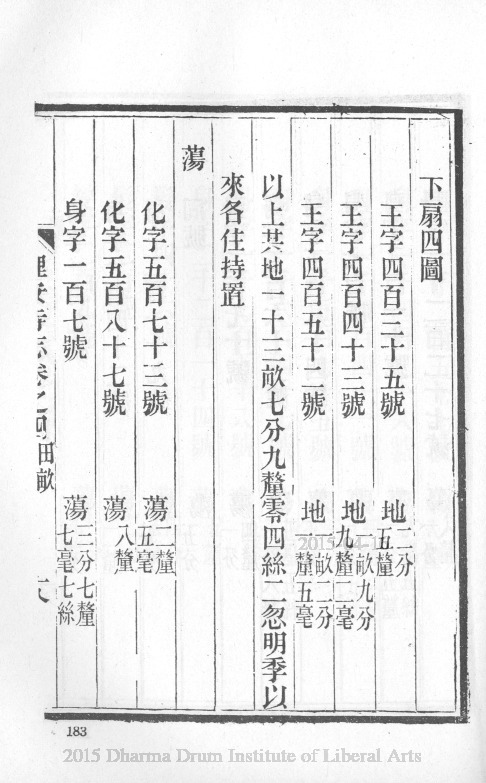 下扇四圖
王字四百三十五號 地二分五釐
王字四百四十三號 地畝九分九釐毫
王字四百五十二號 地畝二分釐五毫
以上共地一十三畝七分九釐零四絲二忽明季以
來各住持置
蕩
化字五百七十三號 蕩二釐五毫
化字五百八十七號 蕩八釐
身字一百七號 蕩三分七釐七毫七絲
理安寺志卷之四田畝
183
2015 Dharma Drum Institute of Liberal Arts